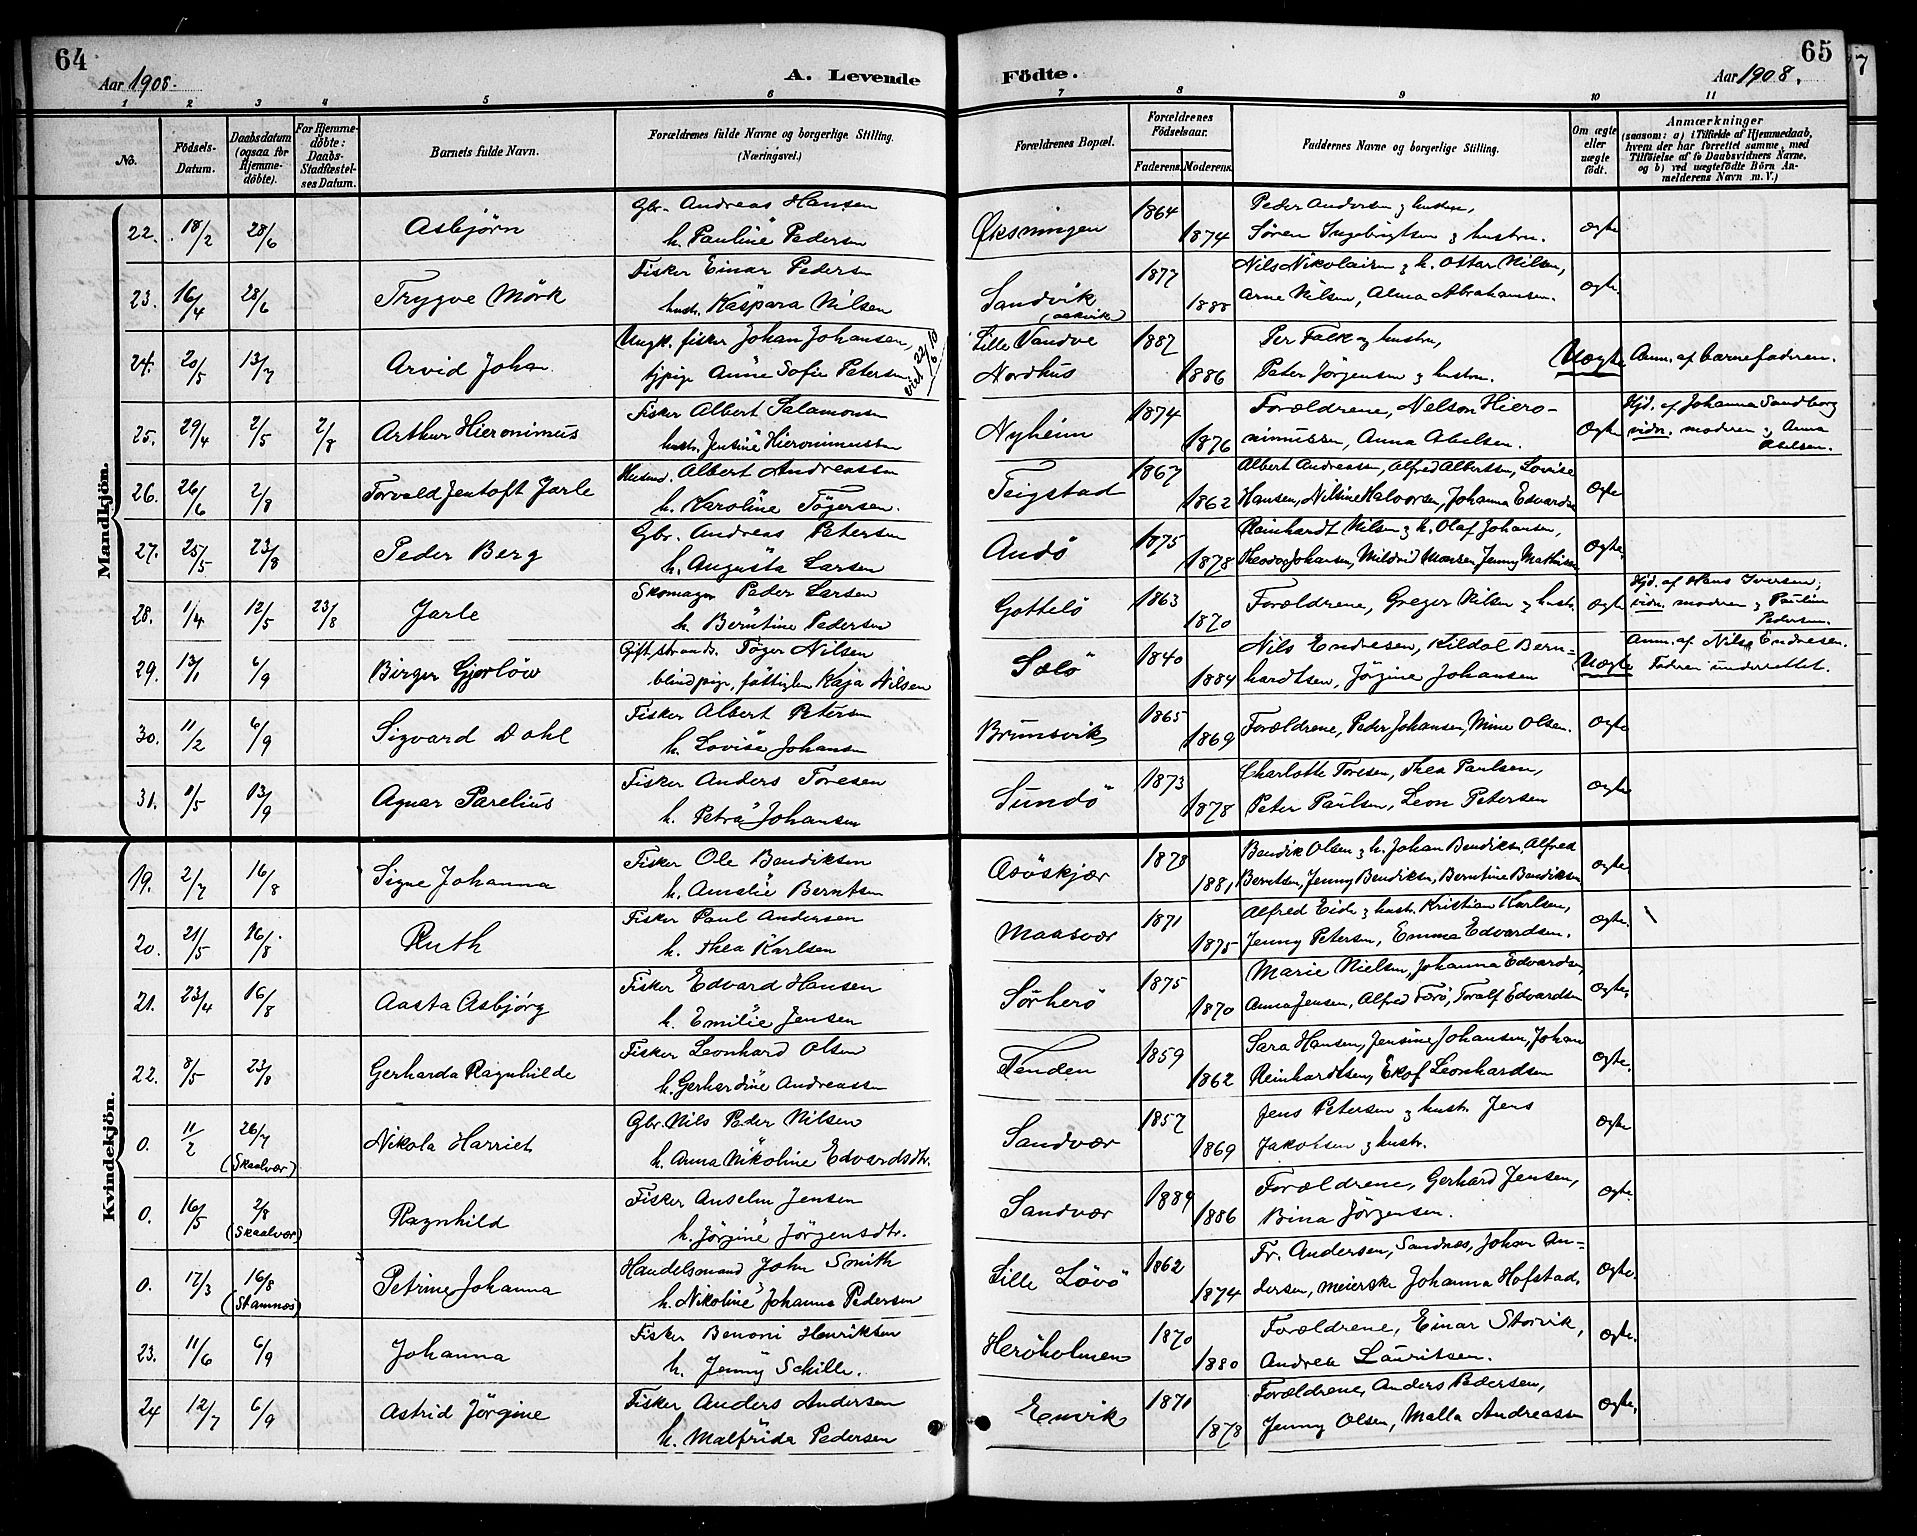 64
Aar 1908.
A. Levende
Födte.
Aar 1908.
65
1 2 3 4 5 6 7 8 9 10 11
No.
Födsels-Datum.
Daabsdatum (ogsaa for Hjemme-döbte).
For Hjemme-döbte: Daabs-Stadfæstel-ses Datum.
Barnets fulde Navn.
Forældrenes fulde Navne og borgerlige Stilling. (Næringsvei.)
Forældrenes Bopæl.
Forældrenes Födselsaar.
Faderens. Moderens.
Faddernes Navne og borgerlige Stilling.
Om ægte eller uægte födt.
Anmærkninger
(saasom: a) i Tilfælde af Hjemmedaab, hvem der har forrettet samme, med Tilföielse af to Daabsvidners Navne, og b) ved uægtefödte Börn An-melderens Navn m. V.)
Mandkjön.
22. 18/2 28/6 Asbjörn Gbr. Andreas Hansen Øksningen 1864 Peder Andersen & hustru, ægte
h. Pauline Pedersen 1874 Sören Ingebrigtsen & hustru.
23. 16/4 28/6 Trygve Mörk Fisker Einar Pedersen Sandvik 1877 Nils Nikolaisen & h. Ottar Nilsen, ægte
hustr. Kaspara Nilsen 1888 Arne Nilsen, Alma Abrahamsen.
24. 20/5 13/7 Arvid Johan Ungk. fisker Johan Johansen, viet 22/6 10 Lille Vandve 1887 Per Falk og hustru, Uægte Anm. af barnefaderen.
tjpige Anne Sofie Petersen Nordhus 1886 Peter Jörgensen & hustru.
25. 29/4 2/5 2/8 Arthur Hieronimus Fisker Albert Salamonsen Nyheim 1874 Forældrene, Nelson Hiero- ægte Hjd. af Johanna Sandberg
hustr. Jentine Hieronimussen 1876 nimussen, Anna Abelsen. vidn. moderen & Anna Abelsen.
26. 26/6 2/8 Torvald Jentoft Jarle Husmd. Albert Andreassen Teigstad 1867 Albert Andreassen, Alfred Albertsen, Lovise ægte
h. Karoline Tögersen. 1862 Hansen, Nilsine Halvorsen, Johanna Edvards
27. 25/5 23/8 Peder Berg Gbr. Andreas Petersen Andö 1875 Reinhardt Nilsen & h. Olaf Johansen, ægte
h. Augusta Larsen 1878 Theodor Johansen, Mildrid Monsen, Jenny Mathisen
28. 1/4 12/5 23/8 Jarle Skomager Peder Larsen Gottelö 1863 Forældrene, Greger Nilsen & hustr. ægte Hjd. af Hans Iversen;
h. Berntine Pedersen 1870 vidn. moderen & Pauline Pedersen.
29. 13/1 6/9 Birger Gjörlöw Gift strands. Töger Nilsen Salö 1840 Nils Endresen, Kildal Bern- Uægte Anm. af Nils Endresen.
blind pige, fattiglem Kaja Nilsen 1884 hardtsen, Jörgine Johansen Faderen underrettet.
30. 11/2 6/9 Sigvard Dahl Fisker Albert Petersen Brunsvik 1865 Forældrene, Peder Johansen, Mine Olsen. ægte
h. Lovise Johansen 1869
31. 1/5 13/9 Agnar Parelius Fisker Anders Toresen Sundö 1873 Charlotte Toresen, Thea Paulsen, ægte
h. Petra Johansen 1878 Peter Paulsen, Leon Petersen
Kvindekjön.
19. 2/7 16/8 Signe Johanna Fisker Ole Bendiksen Aasöskjær 1878 Bendik Olsen & h. Johan Bendiksen, Alfred ægte
h. Amalie Berntsen 1881 Berntsen, Jenny Bendiksen, Berntine Bendiksen
20. 21/5 16/8 Ruth Fisker Paul Andersen Maasvær 1871 Alfred Eide & hustr. Kristian Karlsen, ægte.
h. Thea Karlsen 1875 Jenny Petersen, Emma Edvardsen.
21. 23/4 16/8 Aasta Asbjörg Fisker Edvard Hansen Sörherö 1875 Marie Nielsen, Johanna Edvardsen, ægte.
h. Emilie Jensen 1870 Anna Jensen, Alfred Forö, Toralf Edvardsen
22. 8/5 23/8 Gerharda Ragnhilde Fisker Leonhard Olsen Tenden 1859 Sara Hansen, Jensine Johansen, Johan ægte.
h. Gerhardine Andreassen 1862 Reinhardtsen, Ekof Leonhardsen
0. 11/2 26/7 (Skaalvær) Nikola Harriet Gbr. Nils Peder Nilsen Sandvær 1857 Jens Petersen & hustr. Jens ægte
h. Anna Nikoline Edvardsdtr. 1869 Jakobsen & hustr.
0. 16/5 2/8 (Skaalvær) Ragnhild Fisker Anselm Jensen Sandvær 1889 Forældrene, Gerhard Jensen, ægte
h. Jörgine Jörgensdtr. 1886 Bina Jörgensen.
0. 17/3 16/8 (Stamnes) Petrine Johanna Handelsmand John Smith Lille Lövö 1862 Fr. Andersen, Sandnes, Johan An- ægte.
h. Nikoline Johanna Pedersen 1874 dersen, meierske Johanna Hofstad,
23. 11/6 6/9 Johanna Fisker Benoni Henriksen Heröholmen 1870 Forældrene, Einar Storvik, ægte.
h. Jenny Schille. 1880 Andrea Lauritsen.
24 12/7 6/9 Astrid Jörgine Fisker Anders Andersen Envik 1871 Forældrene, Anders Pedersen, ægte.
h. Malfrida Pedersen 1878 Jenny Olsen, Malla Andreassen